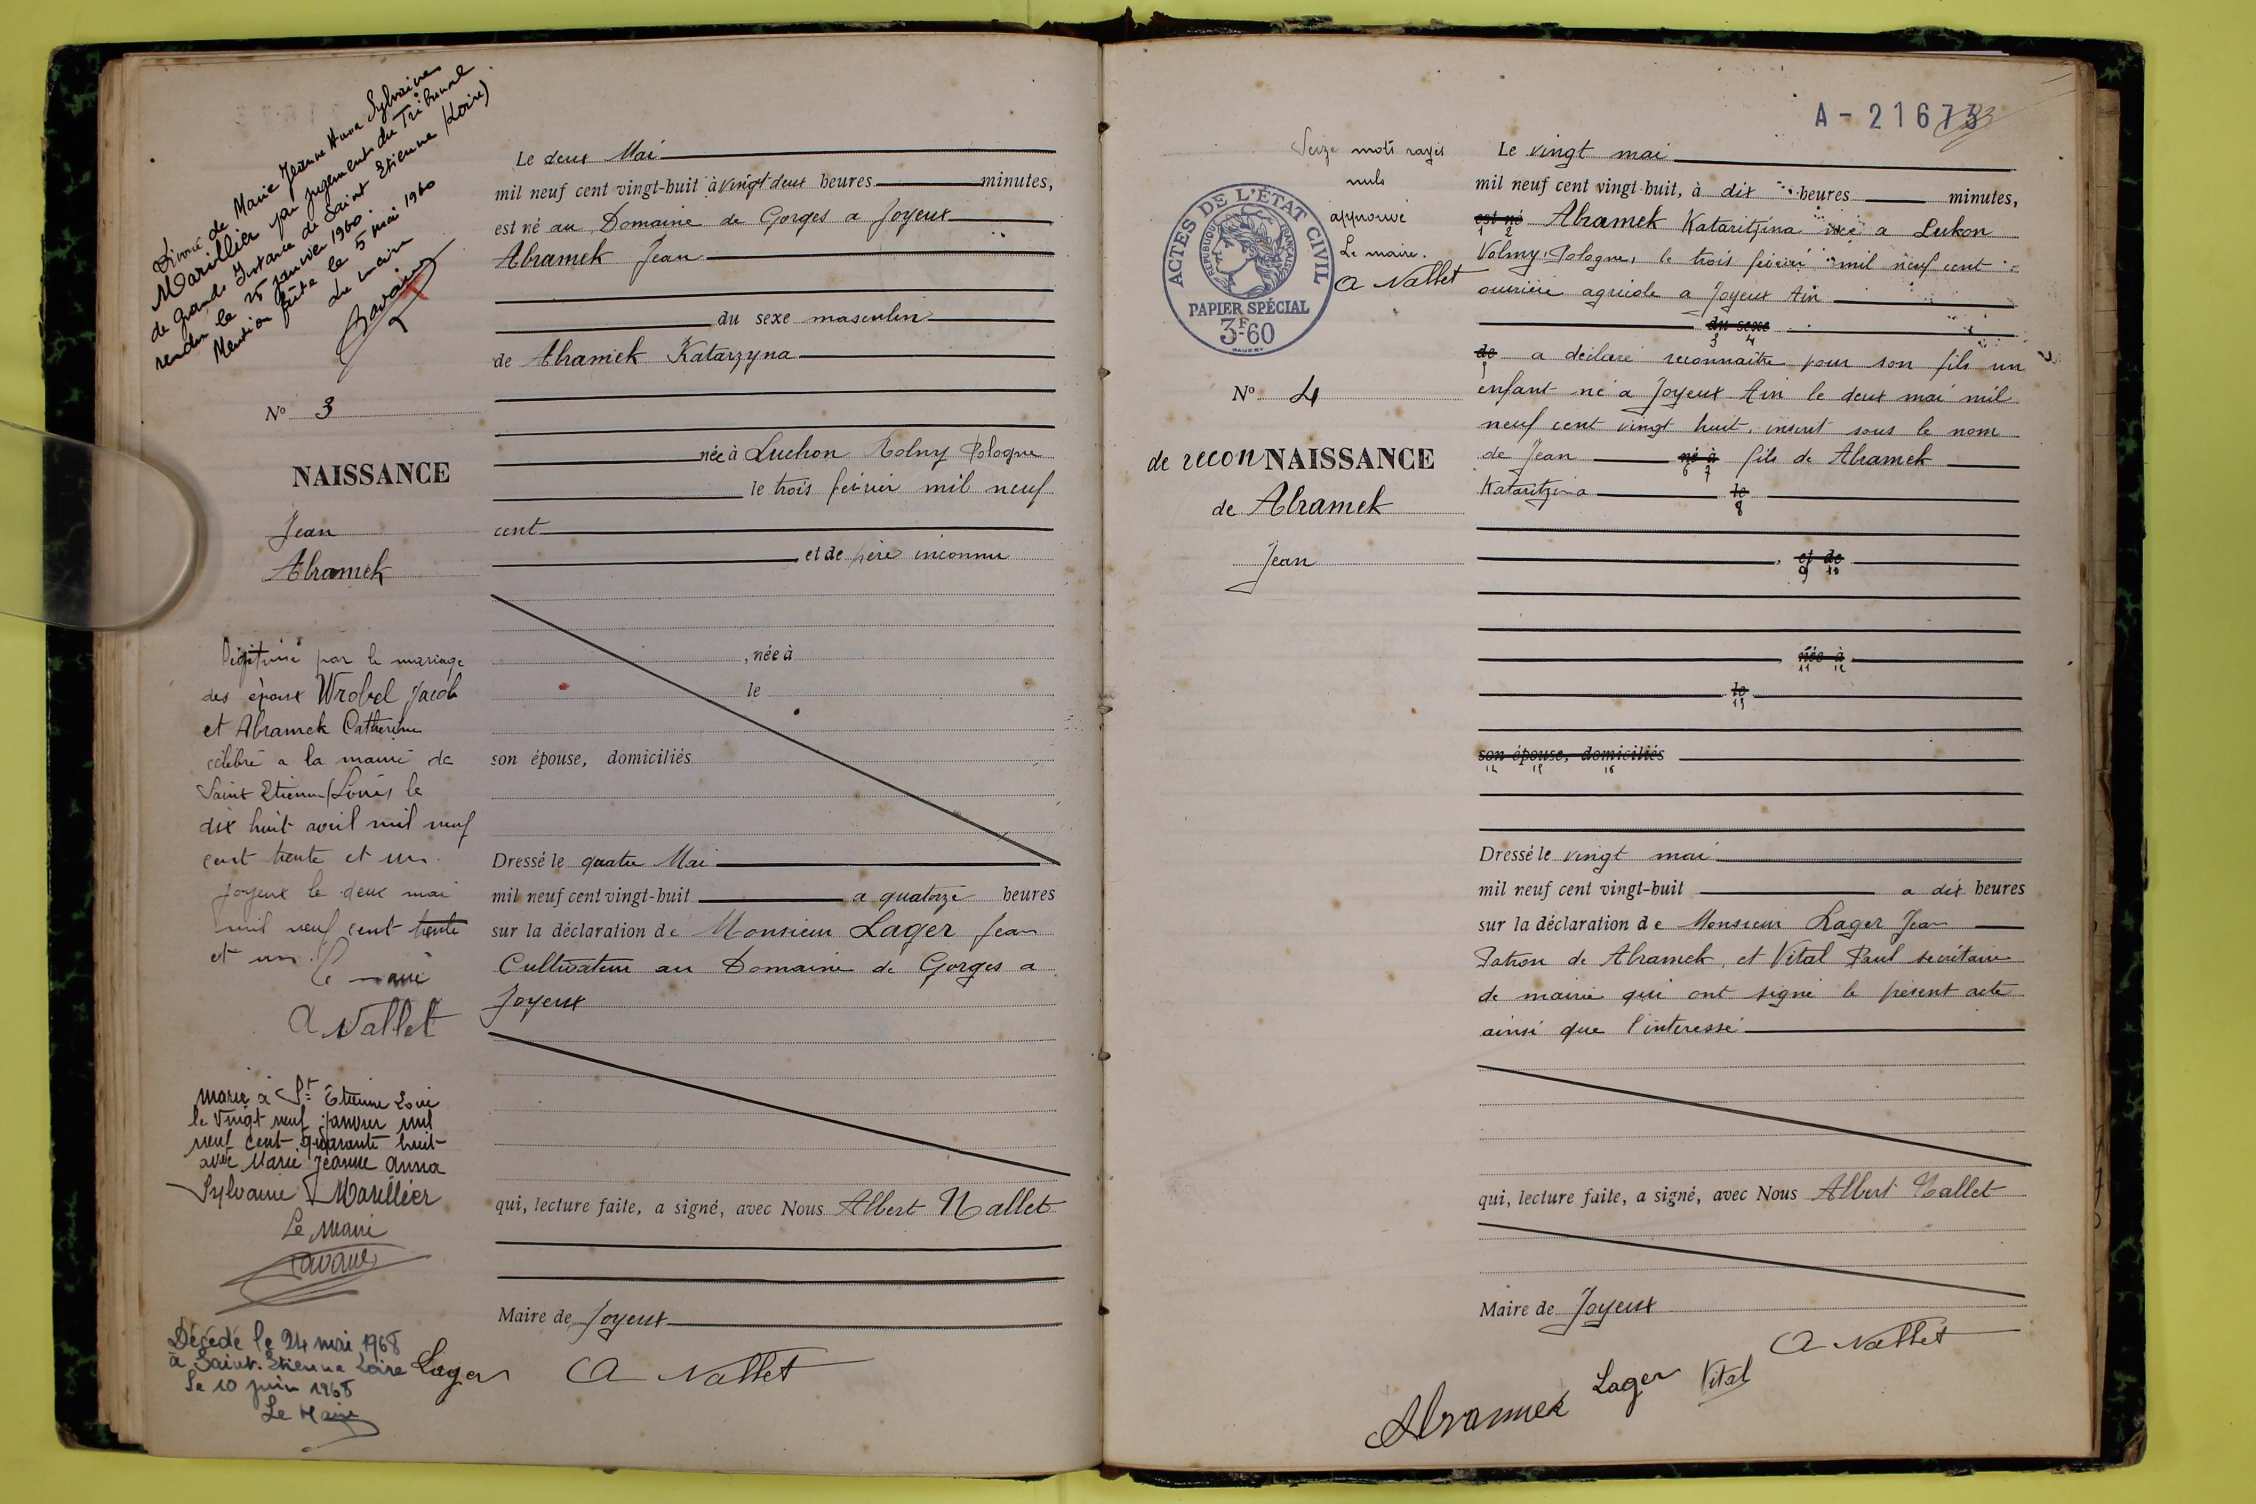 Divorcé de Marie Jeanne Anna Sylvaine
Marillier par jugement du Tribunal
de grande Instance de Saint Etienne (Loire)
rendu le 25 janvier 1960.
Mention faite le 5 mai 1960
Le maire
N° 3
NAISSANCE
Jean
Abramek
Légitimé par le mariage
des époux Wrobel Jacob
et Abramek Catherine
célébré a la mairie de
Saint Etienne (Loire) le
dix huit avril mil neuf
cent trente et un.
Joyeux le deux mai
mil neuf cent trente
et un.
Le maire
A Nallet
marié à St Etienne Loire
le Vingt neuf janvier mil
neuf cent quarante huit
avec Marie Jeanne Anna
Sylvaine Marillier
Le Maire
Décédé le 24 mai 1968
à Saint-Etienne Loire
Le 10 juin 1968
Le Maire
Le deux Mai
mil neuf cent vingt-huit à vingt deux heures minutes,
est né au Domaine de Gorges a Joyeux
Abramek Jean
du sexe masculin
de Abramek Katarzyna
née à Luchon Kolny Pologne
le trois fevrier mil neuf
cent
et de père inconnu
, née à
le
son épouse, domiciliés
Dressé le quatre Mai
mil neuf cent vingt-huit a quatorze heures
sur la déclaration de Monsieur Lager Jean
Cultivateur au Domaine de Gorges a
Joyeux
qui, lecture faite, a signé, avec Nous Albert Nallet
Maire de Joyeux
Lager A Nallet
A-21673
Seize mots rayés
nuls
approuvé
Le maire.
A Nallet
ACTES DE L'ÉTAT CIVIL
RÉPUBLIQUE FRANÇAISE
PAPIER SPÉCIAL
3F-60
N° 4
de reconNAISSANCE
de Abramek
Jean
Le vingt mai
mil neuf cent vingt-huit, à dix heures minutes,
est né Abramek Kataritzina née a Lukon
1 2
Volmy, Pologne, le trois fevrier mil neuf cent
ouvrière agricole a Joyeux Ain
du sexe
3 4
de a déclaré reconnaitre pour son fils un
enfant né a Joyeux Ain le deux mai mil
neuf cent vingt huit, inscrit sous le nom
de Jean né à fils de Abramek
6 7
Kataritzina le
8
, et de
9 10
, née à
11 12
le
13
son épouse, domiciliés
14 15 16
Dressé le vingt mai
mil neuf cent vingt-huit a dix heures
sur la déclaration de Monsieur Lager Jean
Patron de Abramek, et Vital Paul secrétaire
de mairie qui ont signé le présent acte
ainsi que l'interessé
qui, lecture faite, a signé, avec Nous Albert Nallet
Maire de Joyeux
A Nallet
Abramek Lager Vital